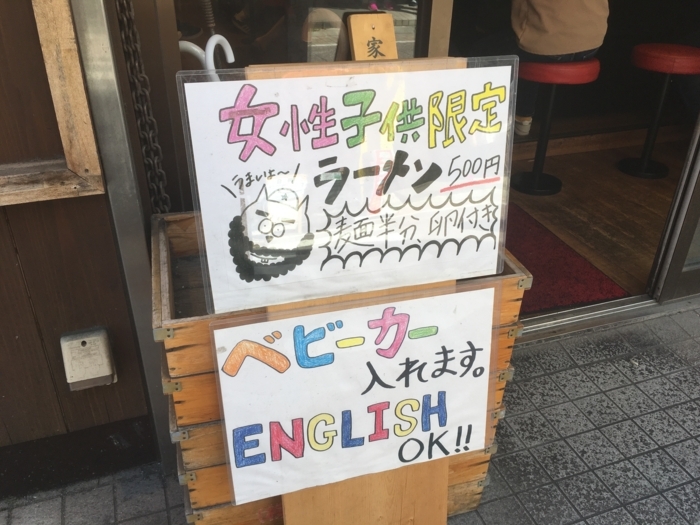 家
女性子供限定
ラーメン 500円
うまいよ〜
麺半分、卵付き
ベビーカー
入れます。
ENGLISH
OK!!